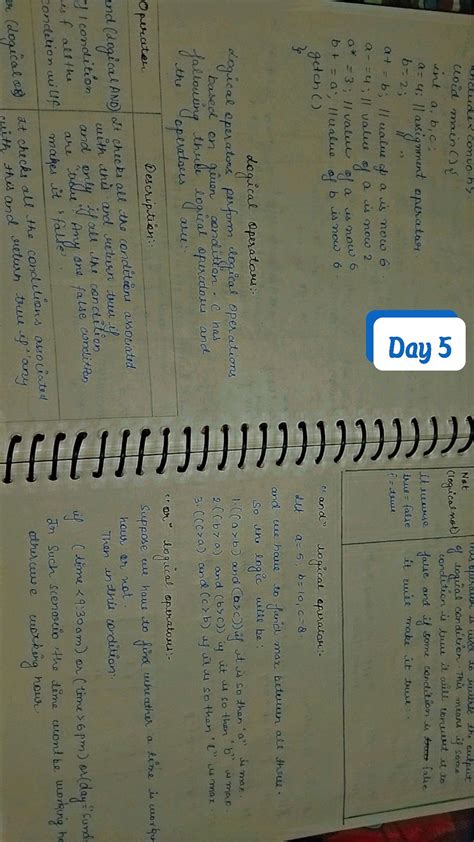 void main() {
int a, b, c;
a = 4; // assignment operator
b = 2;
a + = b; // value of a is now 6
a - = 4; // value of a is now 2
a * = 3; // value of a is now 6
b + = a; // value of b is now 6
getch()
}
Logical operators:-
Logical operators perform logical operations
based on given condition. C has
following three logical operators and
the operators are:
Operator
Description:-
and (logical AND)
if all the
condition will be
It checks all the conditions associated
with this and return true if
and only if all the condition
are true. Any one false condition
makes it false.
or (logical or)
It checks all the conditions associated
with this and return true if any
Day 5
Not
(logical not)
It reverse
true = false
f = true
of logical condition. This means if some
condition is true it will convert it to
false and if some condition is false
it will make it true.
"and" logical operator:-
let a = 5, b = 10, c = 8
and we have to find max between all three.
so the logic will be:
1. ((a>b) and (b>c)) if it is so then "a" is max
2. ((b>a) and (b>c)) if it is so then "b" is max
3. ((c>a) and (c>b)) if it is so then "c" is max.
"or" logical operators:-
Suppose we have to find wheather a time is working
hour or not.
Then in this condition:
if (time < 9:30am) or (time > 6pm) or (day = "sunday
In such scenario the time wont be working ho
otherwise working hour.